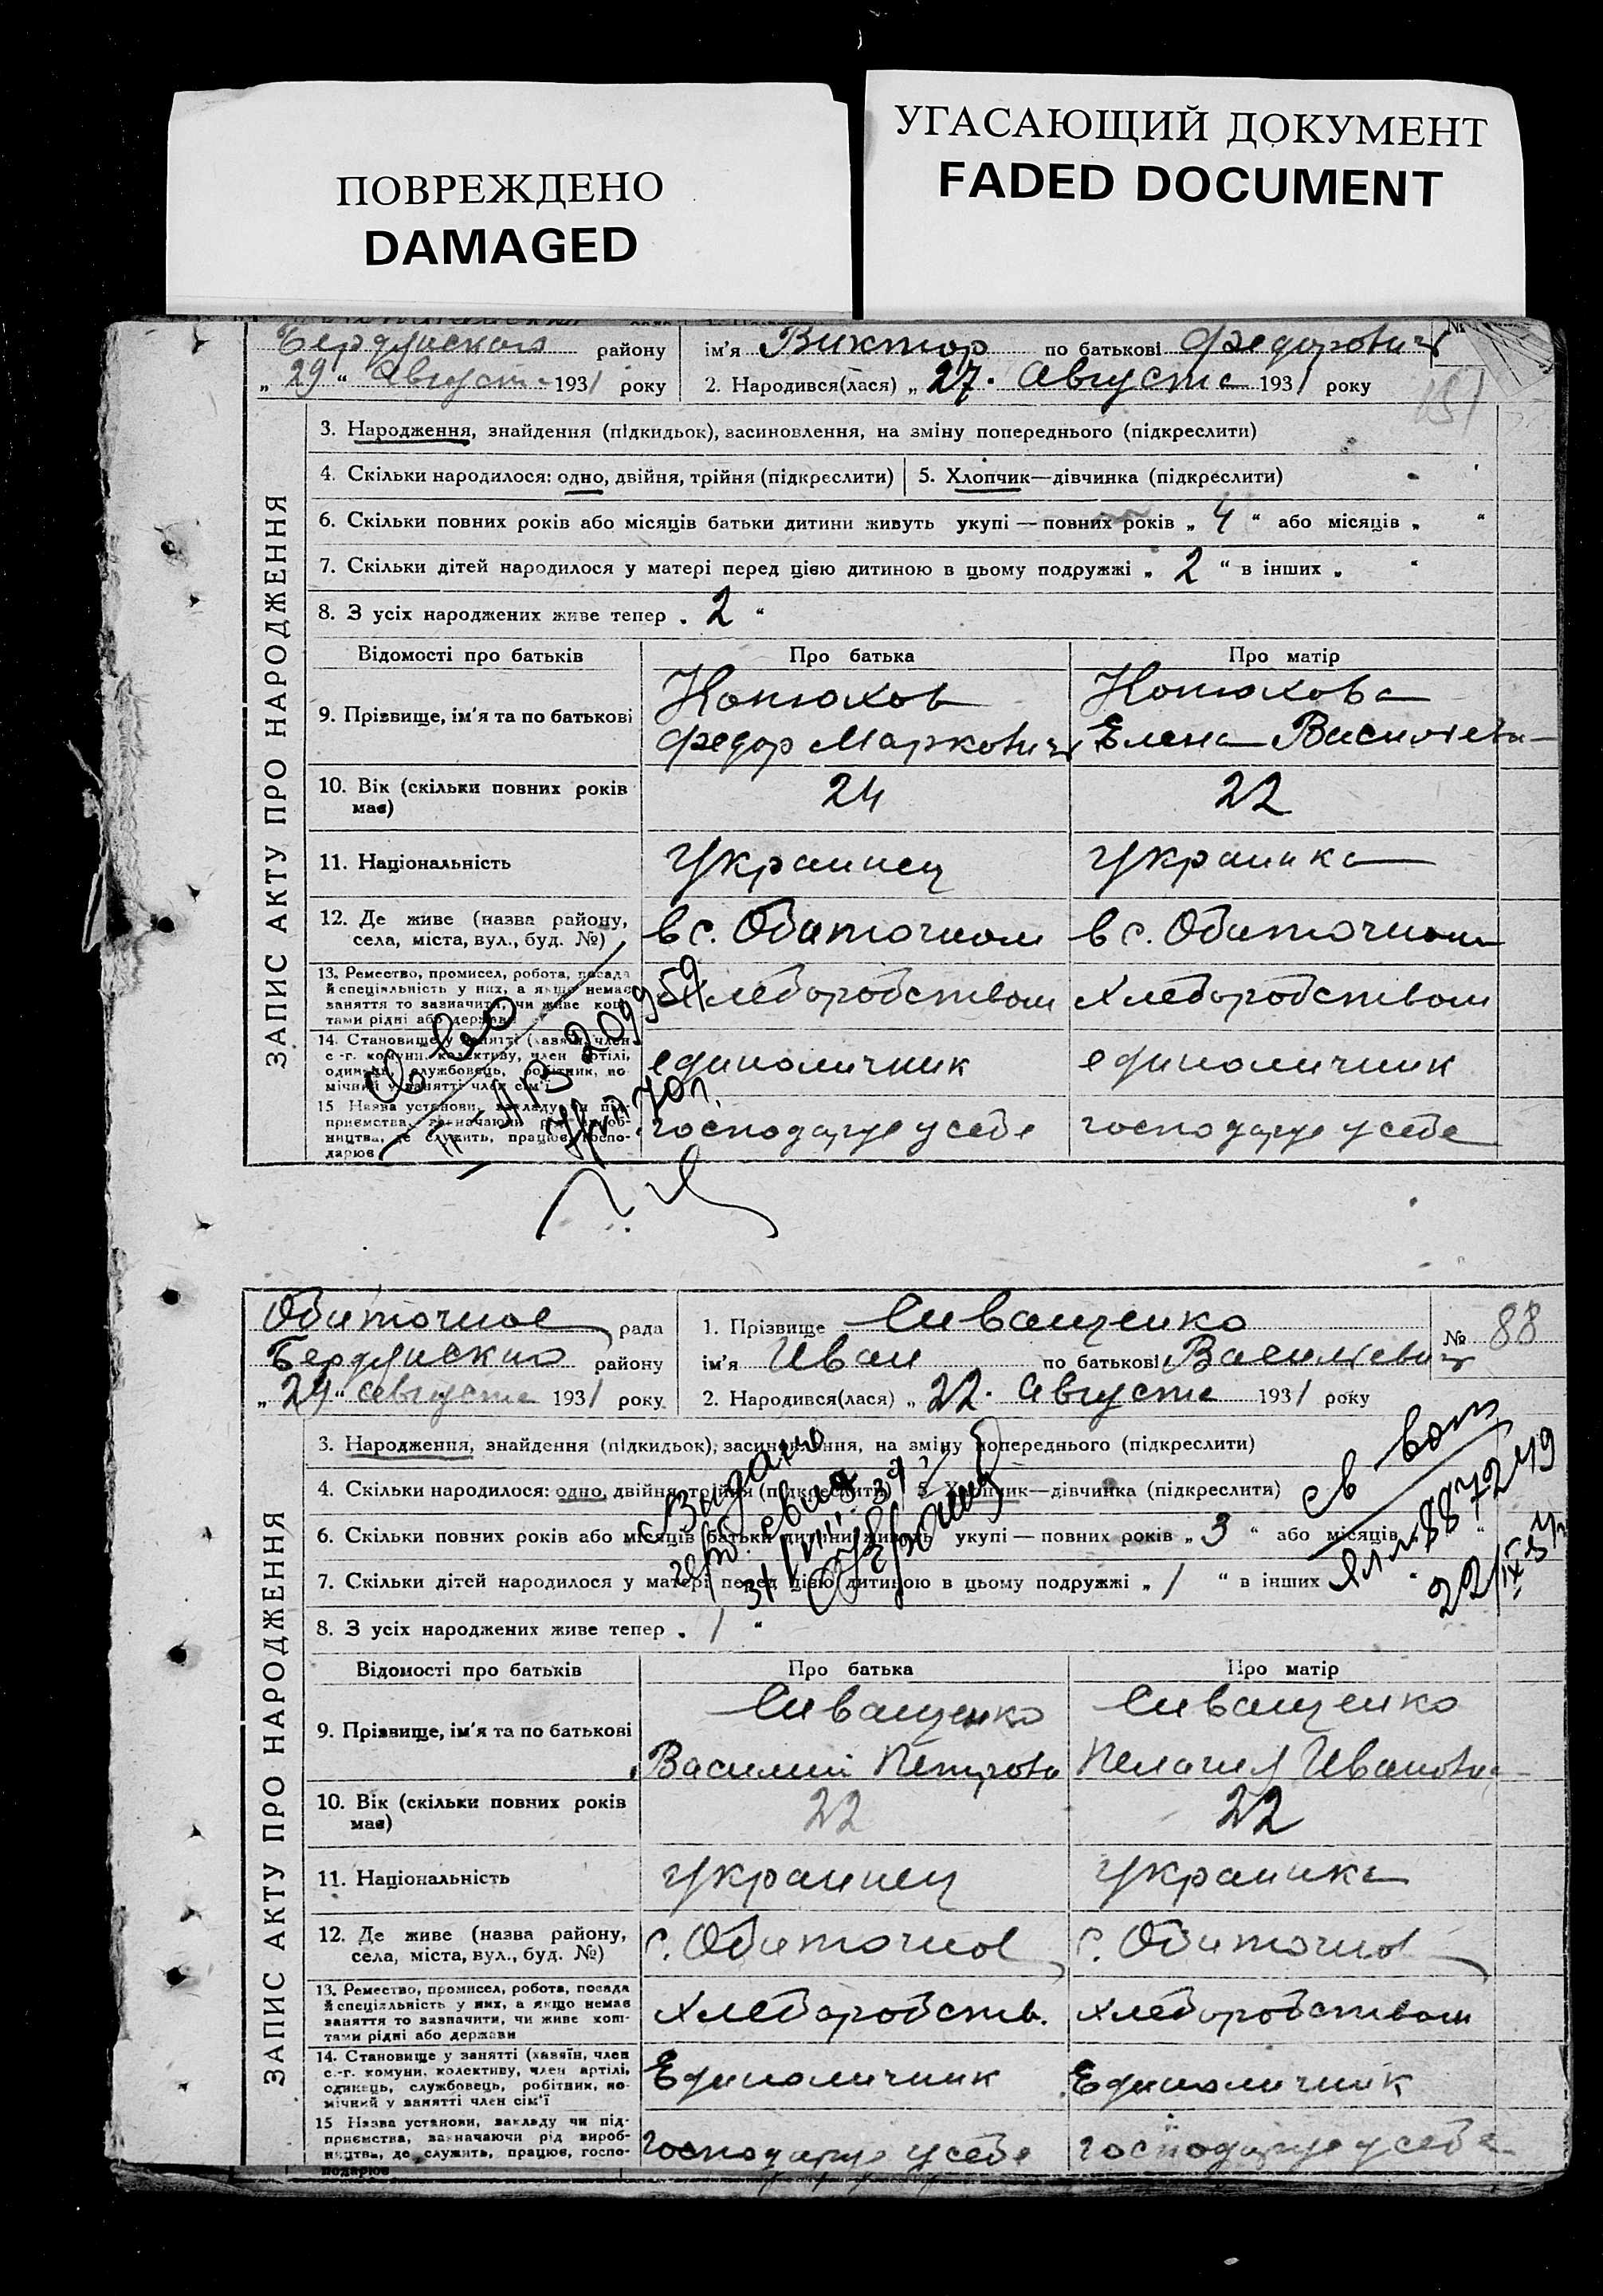 ПОВРЕЖДЕНО
DAMAGED
УГАСАЮЩИЙ ДОКУМЕНТ
FADED DOCUMENT
ЗАПИС АКТУ ПРО НАРОДЖЕННЯ
Бердянского району
„29“ Августа 1931 року
ім'я Виктор по батькові Федорович
№
2. Народився(лася) „27. Августа 1931 року
3. Народження, знайдення (підкидьок), засиновлення, на зміну попереднього (підкреслити)
4. Скільки народилося: одно, двійня, трійня (підкреслити) 5. Хлопчик—дівчинка (підкреслити)
6. Скільки повних років або місяців батьки дитини живуть укупі — повних років „ 4 “ або місяців „ “
7. Скільки дітей народилося у матері перед цією дитиною в цьому подружжі „ 2 “ в інших „ “
8. З усіх народжених живе тепер „ 2 “
Відомості про батьків Про батька Про матір
9. Прізвище, ім'я та по батькові Конюхов Федор Маркович Конюхова Елена
10. Вік (скільки повних років має) 24 22
11. Національність Украинец Украинка
12. Де живе (назва району, села, міста, вул., буд. №) в с. Обиточном в с. Обиточном
13. Ремество, промисел, робота, посада й спеціяльність у них, а якщо немає заняття то зазначити, чи живе кош-тами рідні або держави Хлеборобством Хлеборобством
14. Становище у занятті (хазяїн, член с.-г. комуни, колективу, член артілі, одинець, службовець, робітник, по-мічний у занятті член сім'ї единоличник единоличник
15 Назва установи, закладу чи під-приємства, зазначаючи рід вироб-ництва, де служить, працює, госпо-дарює господарує у себе господарує у себе
ЗАПИС АКТУ ПРО НАРОДЖЕННЯ
Обиточное рада
Бердянского району
„29“ Августа 1931 року
1. Прізвище Сиващенко
№ 88
ім'я Иван по батькові Васильевич
2. Народився(лася) „ 22. Августа 1931 року
3. Народження, знайдення (підкидьок), засиновлення, на зміну попереднього (підкреслити)
4. Скільки народилося: одно, двійня, трійня (підкреслити) 5. Хлопчик—дівчинка (підкреслити)
6. Скільки повних років або місяців батьки дитини живуть укупі — повних років „ 3 “ або місяців
7. Скільки дітей народилося у матері перед цією дитиною в цьому подружжі „ 1 “ в інших
8. З усіх народжених живе тепер „ 1 “
Видано
Відомості про батьків Про батька Про матір
9. Прізвище, ім'я та по батькові Сиващенко Василий Петрови Сиващенко Пелагия Ивановна
10. Вік (скільки повних років має) 22 22
11. Національність Украинец Украинка
12. Де живе (назва району, села, міста, вул., буд. №) с. Обиточное с. Обиточное
13. Ремество, промисел, робота, посада й спеціяльність у них, а якщо немає заняття то зазначити, чи живе кош-тами рідні або держави Хлеборобств. Хлеборобством
14. Становище у занятті (хазяїн, член с.-г. комуни, колективу, член артілі, одинець, службовець, робітник, по-мічний у занятті член сім'ї Единоличник Единоличник
15 Назва установи, закладу чи під-приємства, зазначаючи рід вироб-ництва, де служить, працює, госпо-подарює Господарує у себе господарує у себе